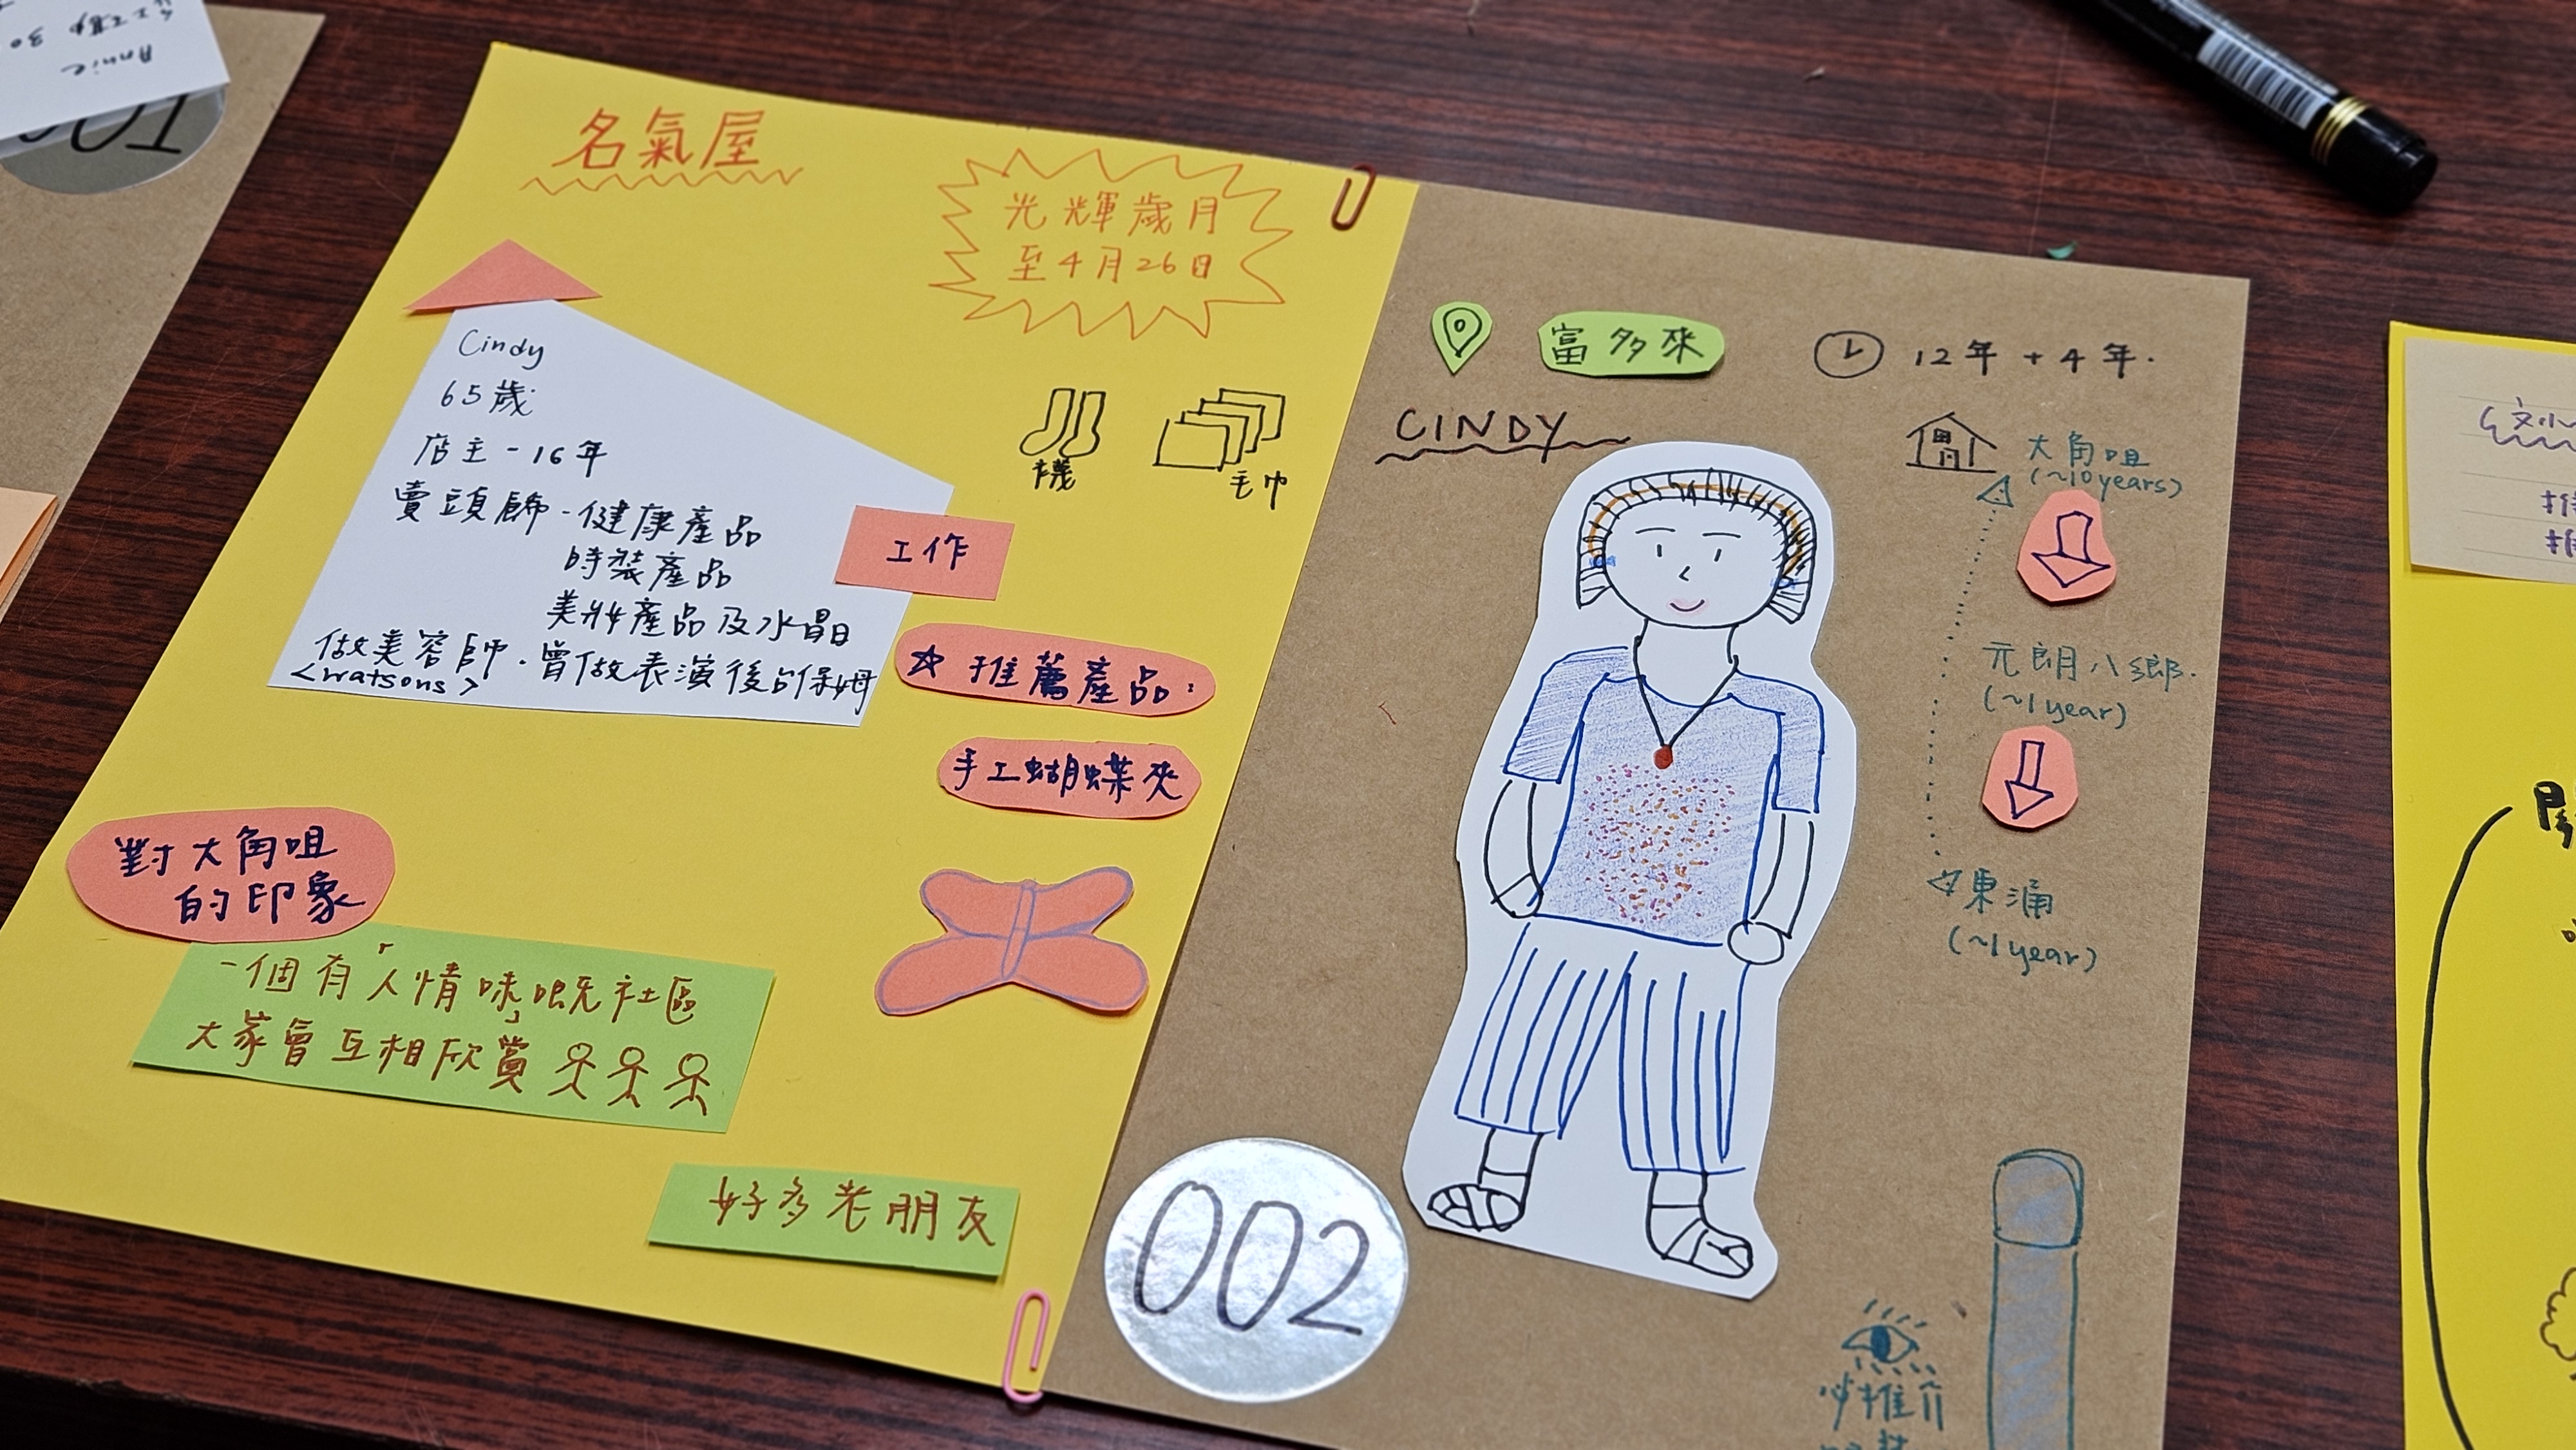 Annie
名氣屋
光輝歲月
至4月26日
Cindy
65歲
店主-16年
賣頭飾-健康產品
時裝產品
美妝產品及水晶
做美容師.曾做表演後台保姆
<watsons>
工作
襪
毛巾
☆推薦產品:
手工蝴蝶夾
對大角咀
的印象
一個有「人情味」嘅社區
大家會互相欣賞
好多老朋友
富多來
12年+4年.
CINDY
大角咀
(~10years)
元朗八鄉.
(~1year)
東涌
(~1year)
002
必推介